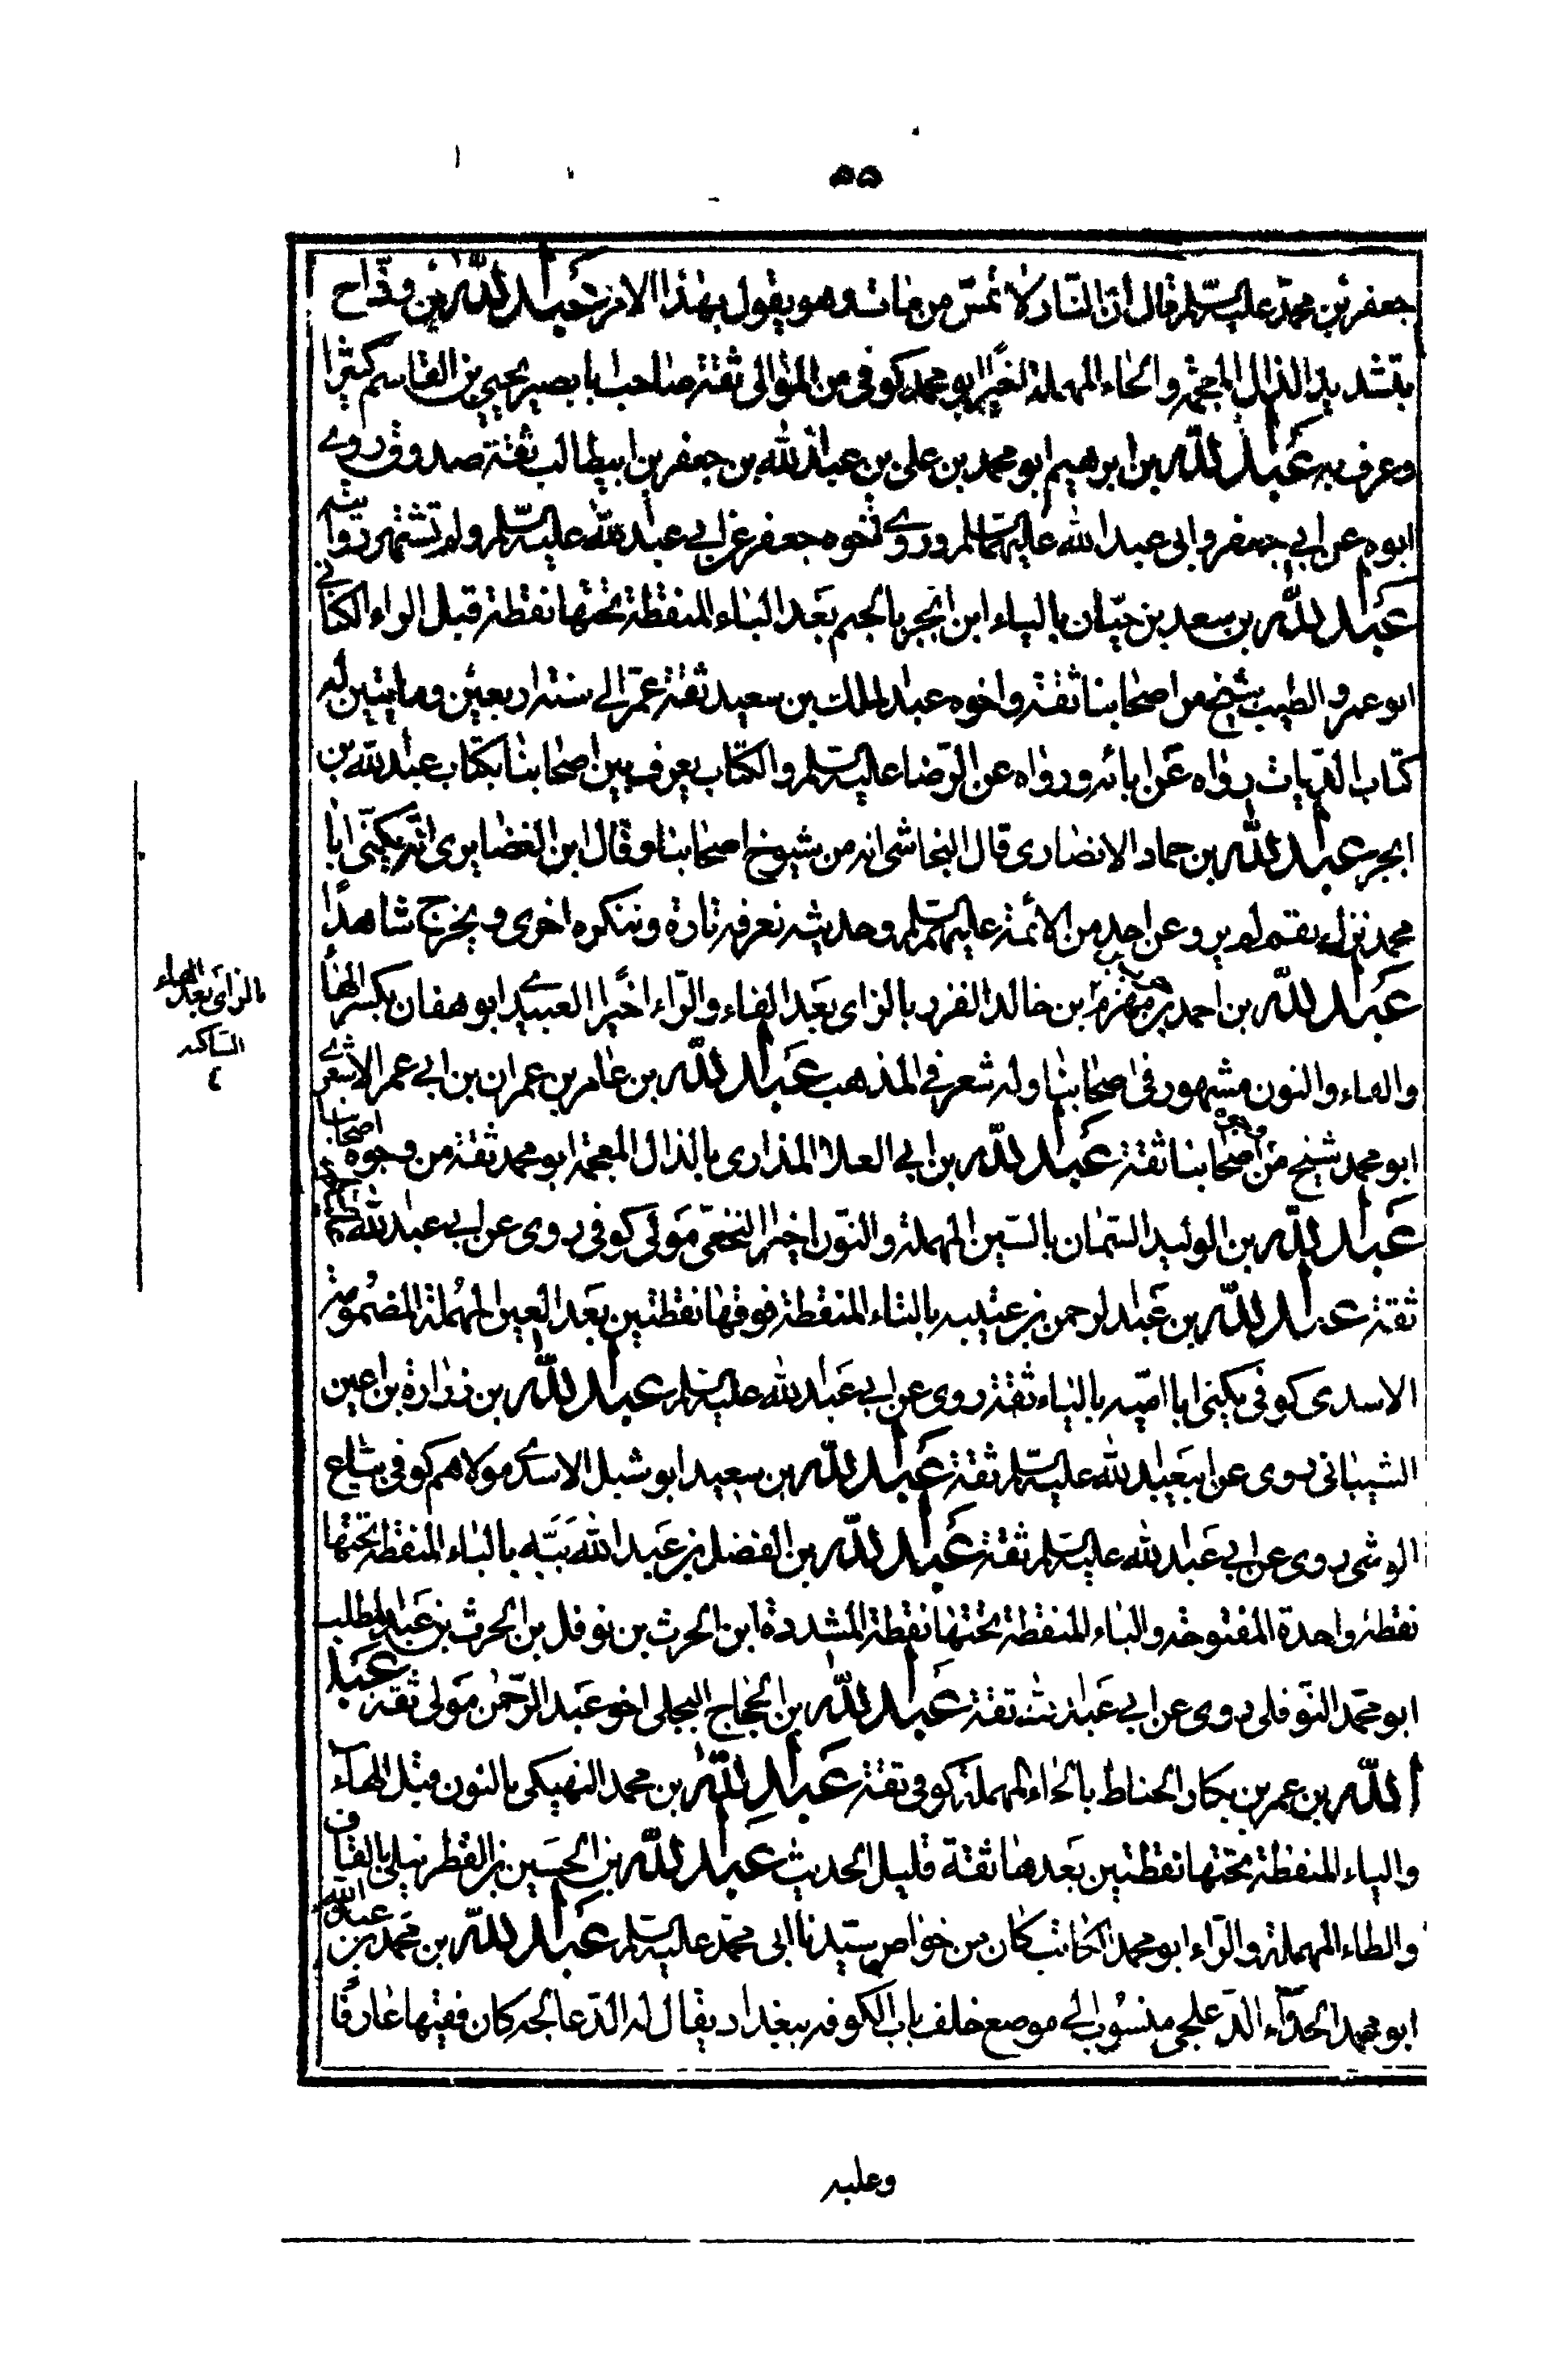 ٥٥
جعفر بن محمد عليه السلم قال ان النار لا تمس من مات وهو يقول بهذا الامر عبد الله بن وضاح
بتشديد الذال المعجمة والحاء المهملة اخيرا ابو محمد كوفى من الموالى ثقة صاحب ابا بصير يحيى بن القاسم كثيرا
وعرف به عبد الله بن ابرهيم ابو محمد بن على بن عبد الله بن جعفر بن ابيطالب ثقة صدوق روى
ابوه عن ابي جعفر وابى عبد الله عليهما السلم وروى اخوه جعفر عن ابي عبد الله عليه السلم ولم تشتهر روايته
عبد الله بن سعيد بن حيان بالياء ابن ابجر بالجيم بعد الباء المنقطة تحتها نقطة قبل الراء الكنانى
ابو عمرو الطبيب شيخ من اصحابنا ثقة واخوه عبد الملك بن سعيد ثقة عمر الى سنة اربعين ومايتين له
كتاب الديات رواه عن ابائه ورواه عن الرضا عليه السلم والكتاب يعرف بين اصحابنا بكتاب عبد الله بن
ابجر عبد الله بن حماد الانصارى قال النجاشى انه من شيوخ اصحابنا وقال ابن الغضايرى انه يكنى ابا
محمد نزل قم لم يرو عن احد من الائمة عليهم السلم وحديثه نعرفه تارة وننكره اخرى ويخرج شاهدا
عبد الله بن احمد بن حرب بن مهزم بن خالد الفزر بالزاى بعد الفاء والراء اخيرا العبدى ابو هفان بكسر الهاء
والفاء والنون مشهور فى اصحابنا وله شعر في المذهب عبد الله بن عامر بن عمران بن ابي عمر الاشعرى
ابو محمد شيخ من وجوه اصحابنا ثقة عبد الله بن ابي العلا المذارى بالذال المعجمة ابو محمد ثقة من وجوه اصحابنا
عبد الله بن الوليد السمان بالسين المهملة والنون اخيرا النخعى مولى كوفى روى عن ابي عبد الله
ثقة عبد الله بن عبد الرحمن بن عتيبه بالتاء المنقطة فوقها نقطتين بعد العين المهملة المضمومة
الاسدى كوفى يكنى ابا اميه بالياء ثقة روى عن ابي عبد الله عليه السلم عبد الله بن زرارة بن اعين
الشيبانى روى عن ابيعبد الله عليه السلم ثقة عبد الله بن سعيد ابو شبل الاسدى مولاهم كوفى بياع
الوشى روى عن ابي عبد الله عليه السلم ثقة عبد الله بن الفضل بن عبد الله ببه بالباء المنقطة تحتها
نقطة واحدة المفتوحة والباء المنقطة تحتها نقطة المشددة ابن الحرث بن نوفل بن الحرث بن عبد المطلب
ابو محمد النوفلى روى عن ابي عبد الله ثقة عبد الله بن الحجاج البجلى اخو عبد الرحمن مولى ثقة عبد
الله بن عمر بن بكار الحناط بالحاء المهملة كوفى ثقة عبد الله بن محمد النهيكى بالنون قبل الهاء
والياء المنقطة تحتها نقطتين بعدها ثقة قليل الحديث عبد الله بن الحسين بن القطربلى بالقاف
والطاء المهملة والراء ابو محمد الكاتب كان من خواص سيدنا ابى محمد عليه السلم عبد الله بن محمد بن عبد الله
ابو محمد الحذاء الدعلجى منسوب الى موضع خلف باب الكوفه ببغداد يقال له الدعالجه كان فقيها عارفا
بالزاى بعد الهاء
الساكنه
وعليه